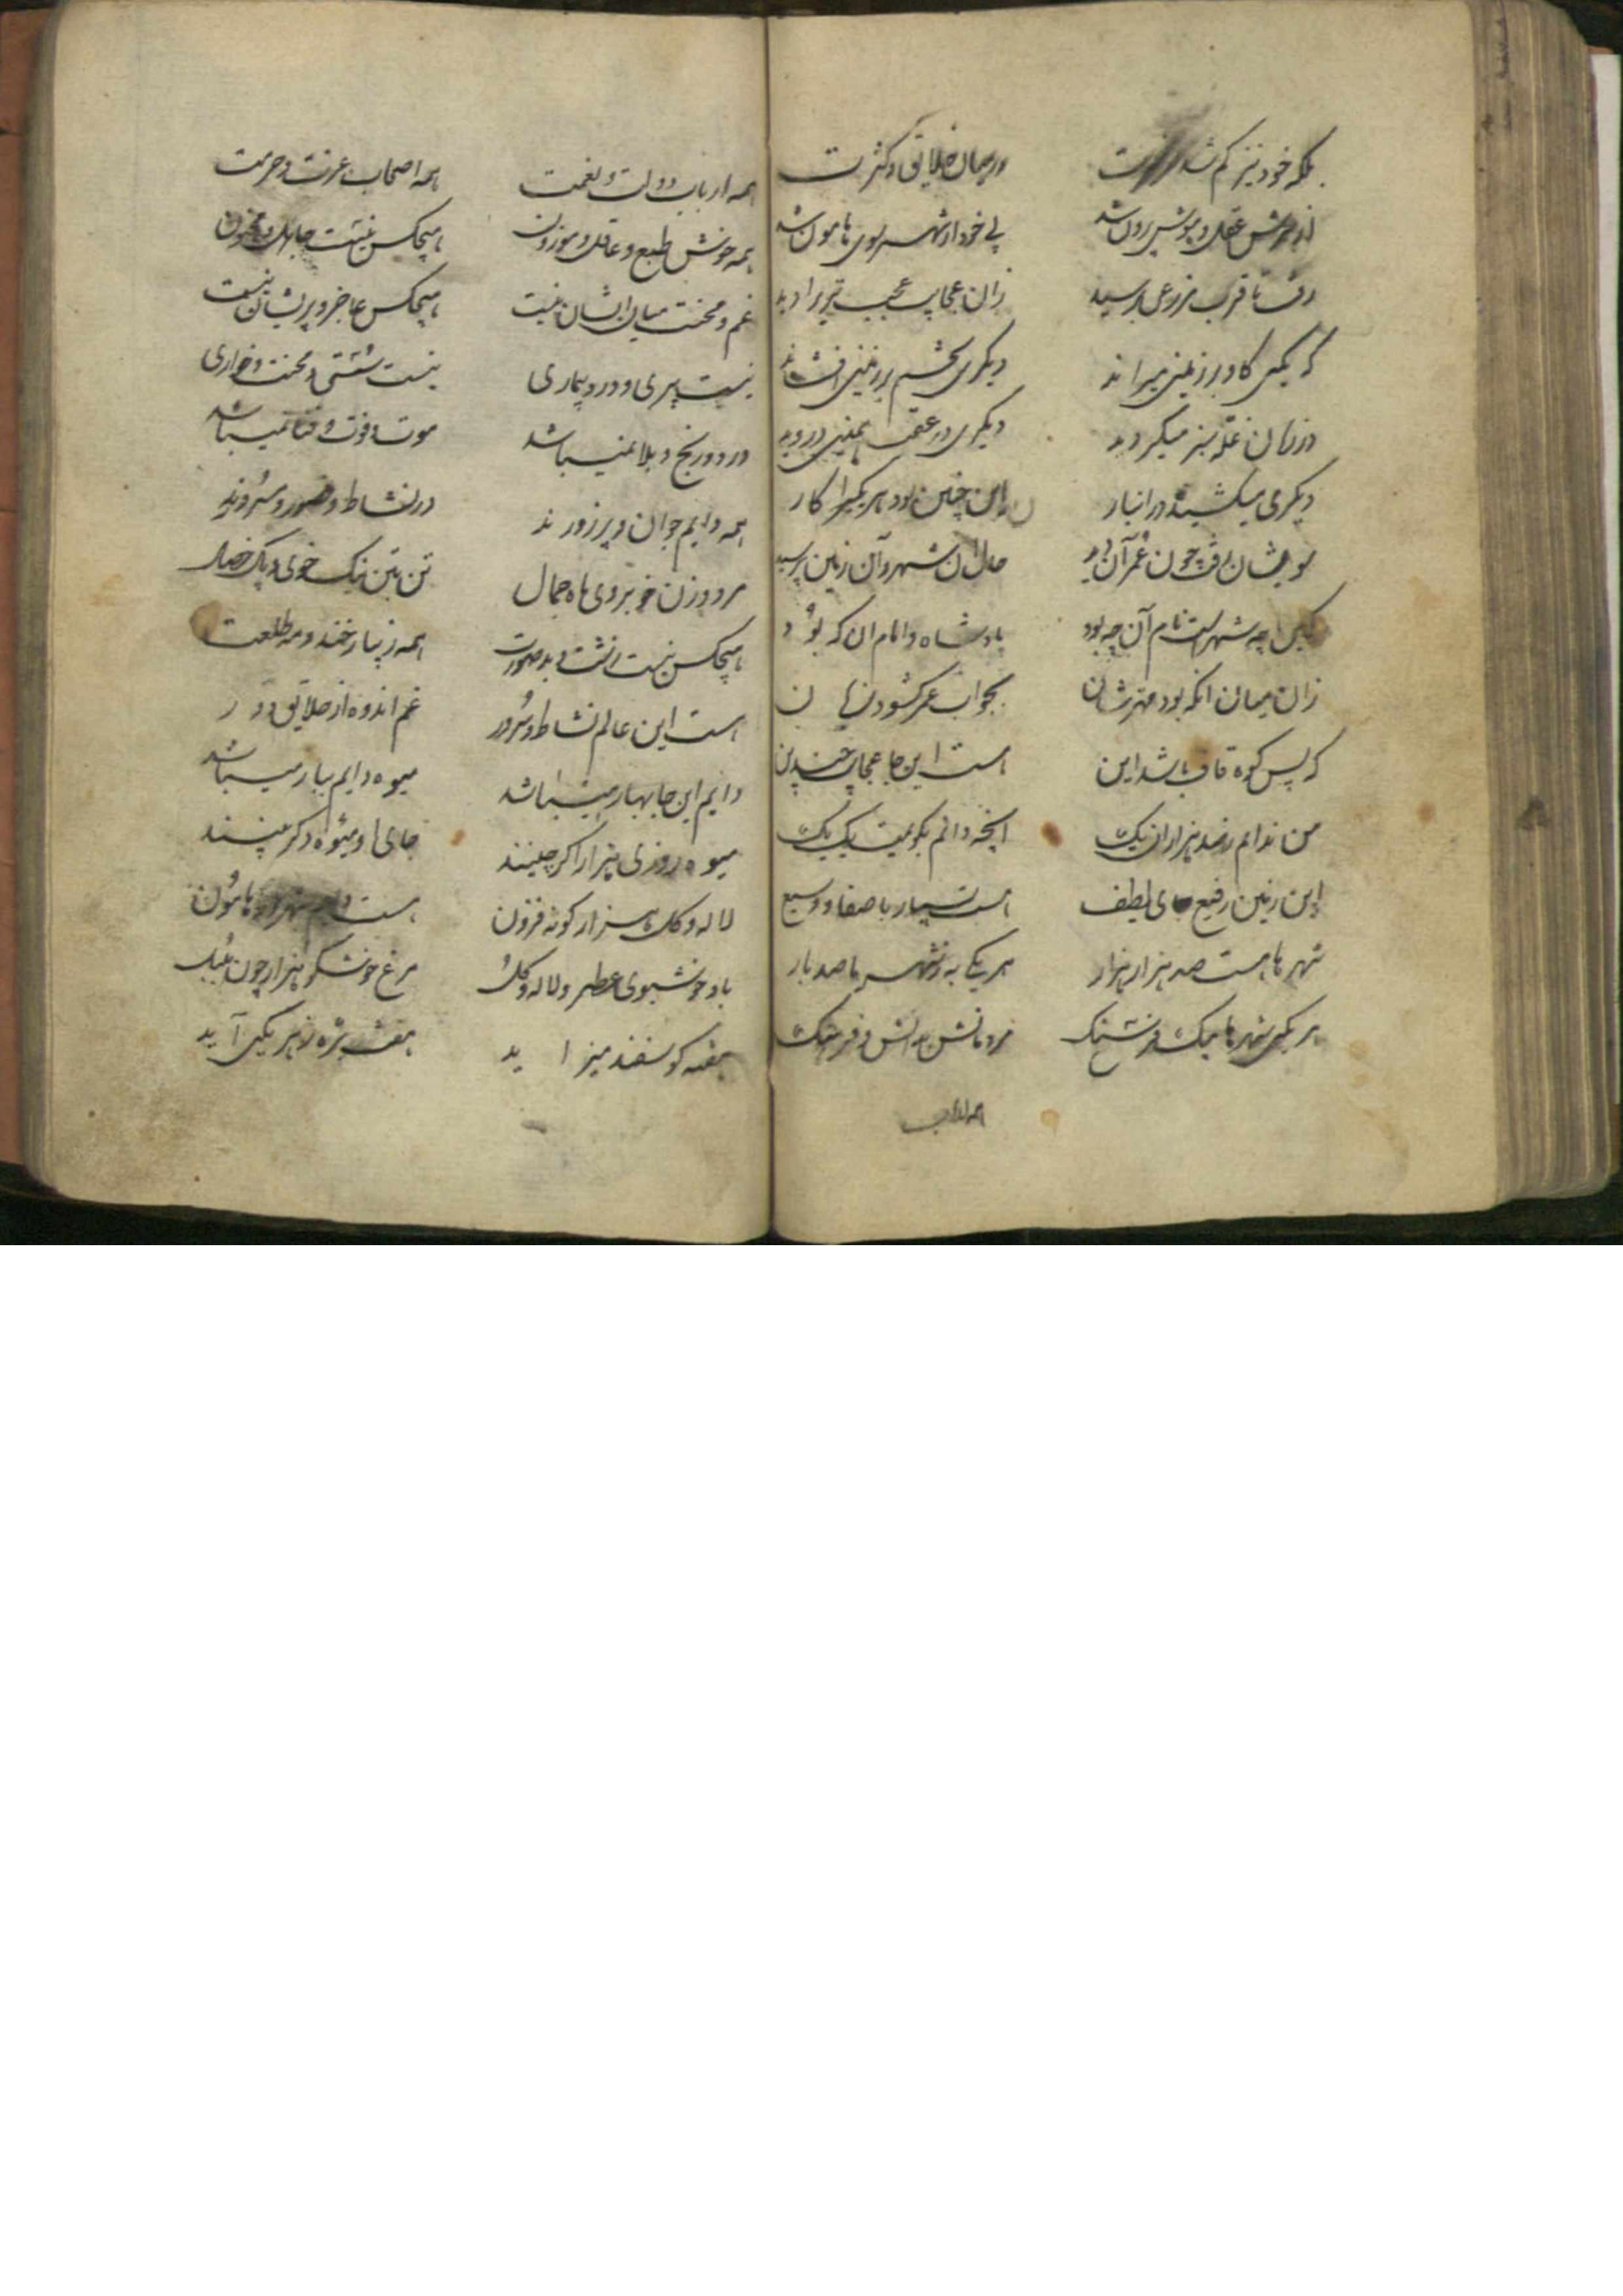 بلکه خود نیز کم شد
در میان خلایق و کثرت
از سرش عقل و هوش بیرون شد
بی خود از شهر سوی هامون شد
رفت تا قرب مزرعی برسید
زان عجایب عجب تری را دید
که یکی گاو بر زمین میراند
دیگری تخم بر زمین افشاند
در زمان غله سبز میگردید
دیگری در عقب همین دروید
دیگری میکشید در انبار
این چنین بود هر یکی را کار
سویشان رفت چون عمر آن دید
حال آن شهر و آن زمین پرسید
کین چه شهر است نام آن چه بود
پادشاه و امام آن که بود
زان میان آنکه بود مهترشان
بجواب عمر کشود زبان
که پس کوه قاف باشد این
هست اینجا عجایب چندین
من ندانم ز صد هزاران یک
آنچه دانم بگویمت یک یک
این زمین رفیع جای لطیف
هست بسیار با صفا و وسیع
شهرها هست صد هزار هزار
هر یکی به ز شهر ما صد بار
هر یکی شهرها بیک فرسنگ
مردمانش بدانش و فرهنگ
همه ارباب
همه ارباب دولت و نعمت
همه اصحاب عزت و حرمت
همه خوش طبع و عاقل و موزون
هیچکس نیست جاهل و مجنون
غم و محنت میان ایشان نیست
هیچکس عاجز و پریشان نیست
نیست پیری و درد و بیماری
نیست سستی و محنت و خواری
درد و رنج و بلا نمیباشد
موت و فوت و فنا نمیباشد
همه دایم جوان و پر زورند
در نشاط و حضور و سرورند
مرد و زن خوبروی ماه جمال
تن بتن نیک خوی و پاک خصال
هیچکس نیست زشت و بد صورت
همه زیبا رخند و مه طلعت
هست این عالم نشاط و سرور
غم اندوه از خلایق دور
دایم اینجا بهار میباشد
میوه دایم ببار میباشد
میوه روزی هزار اگر چینند
جای او میوه دگر بینند
لاله و گل هزار گونه فزون
هست دایم هامون
باد خوشبوی عطر و لاله و گل
مرغ خوشگو هزار چون بلبل
هفته گوسفند میزاید
هفت بره ز هر یکی آید